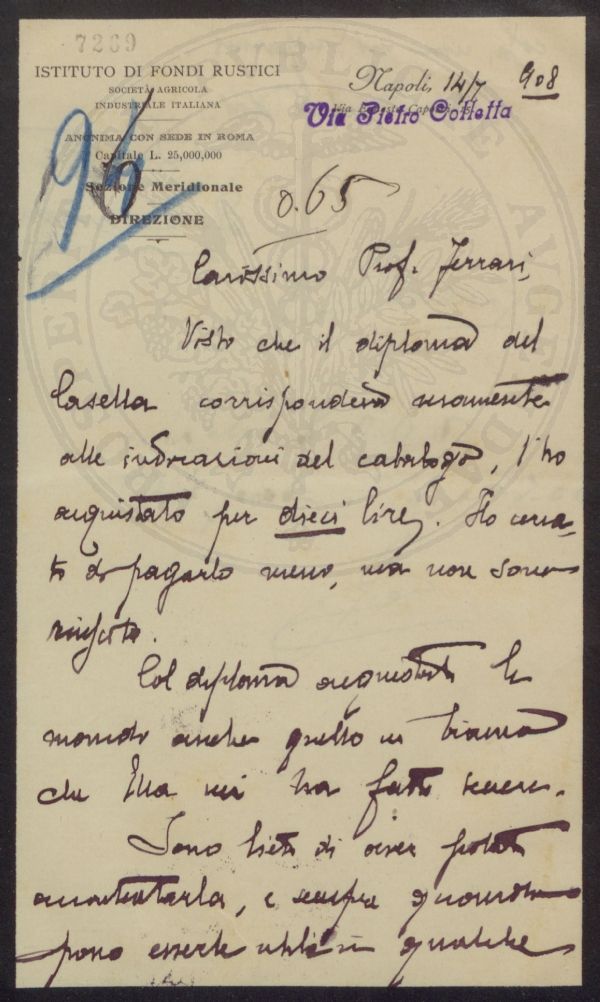 7269
ISTITUTO DI FONDI RUSTICI
SOCIETÀ AGRICOLA
INDUSTRIALE ITALIANA
ANONIMA CON SEDE IN ROMA
Capitale L. 25,000,000
Sezione Meridionale
DIREZIONE
96
Napoli, 14/7 908
Via Pietro Colletta
0.65
Carissimo Prof. Ferrari,
Visto che il diploma del
Casella corrispondeva veramente
alle indicazioni del catalogo, l'ho
acquistato per dieci lire. Ho cerca-
to di pagarlo meno, ma non sono
riuscito.
Col diploma acquistato le
mando anche quello in bianco
che Ella mi ha fatto tenere.
Sono lieto di aver potuto
accontentarla, e sempre quando
posso esserle utile in qualche